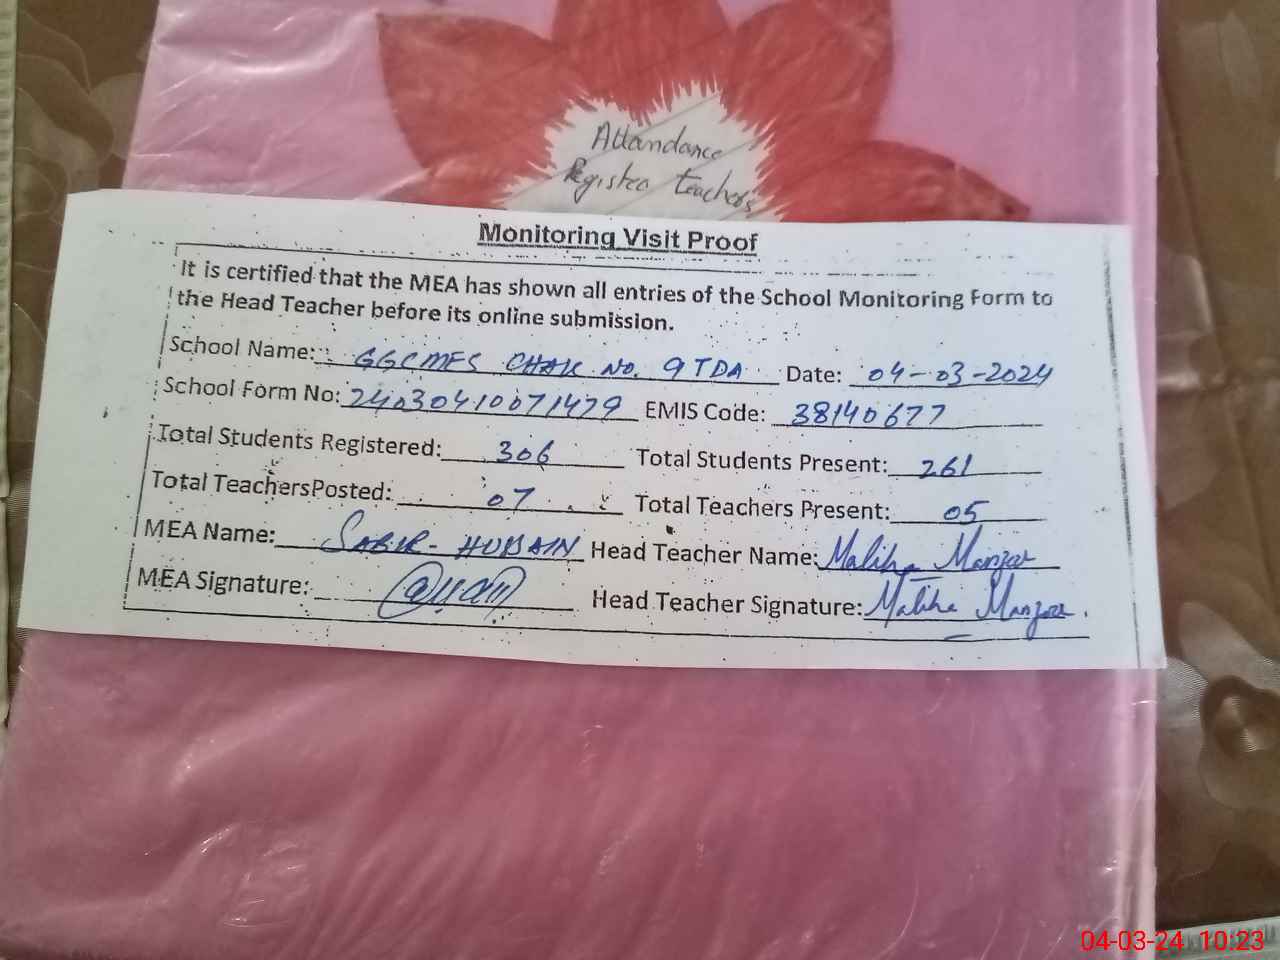 Attandance
Register teachers
Monitoring Visit Proof
It is certified that the MEA has shown all entries of the School Monitoring Form to
the Head Teacher before its online submission.
School Name: GGCMES CHAK No. 9 TDA Date: 04-03-2024
School Form No: 24030410071479 EMIS Code: 38140677
Total Students Registered: 306 Total Students Present: 261
Total TeachersPosted: 07 Total Teachers Present: 05
MEA Name: SABIR - HUSSAIN Head Teacher Name: Maliha Manzoor
MEA Signature: Head Teacher Signature: Maliha Manzoor.
04-03-24 10:23